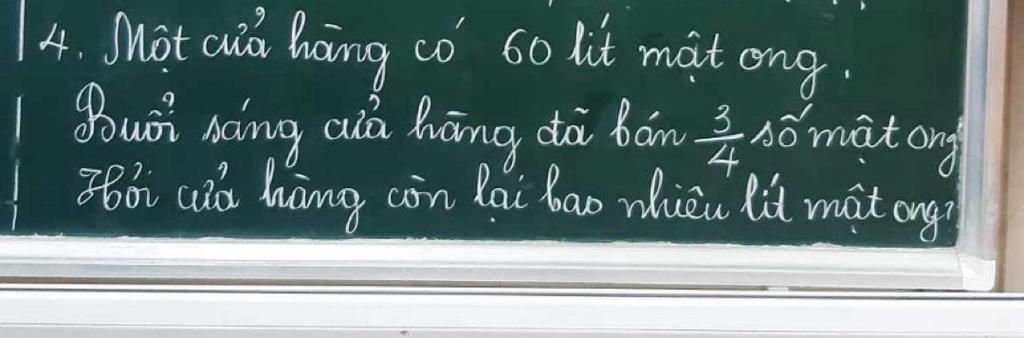 4. Một cửa hàng có 60 lít mật ong.
Buổi sáng cửa hàng đã bán 3/4 số mật ong
Hỏi cửa hàng còn lại bao nhiêu lít mật ong?